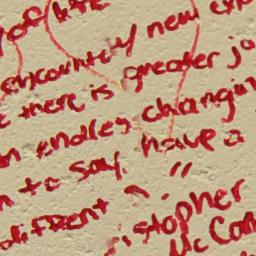 of life
encounters new exp
there is greater jo
an endless changin
n to say, have a
different "
istopher
McCan